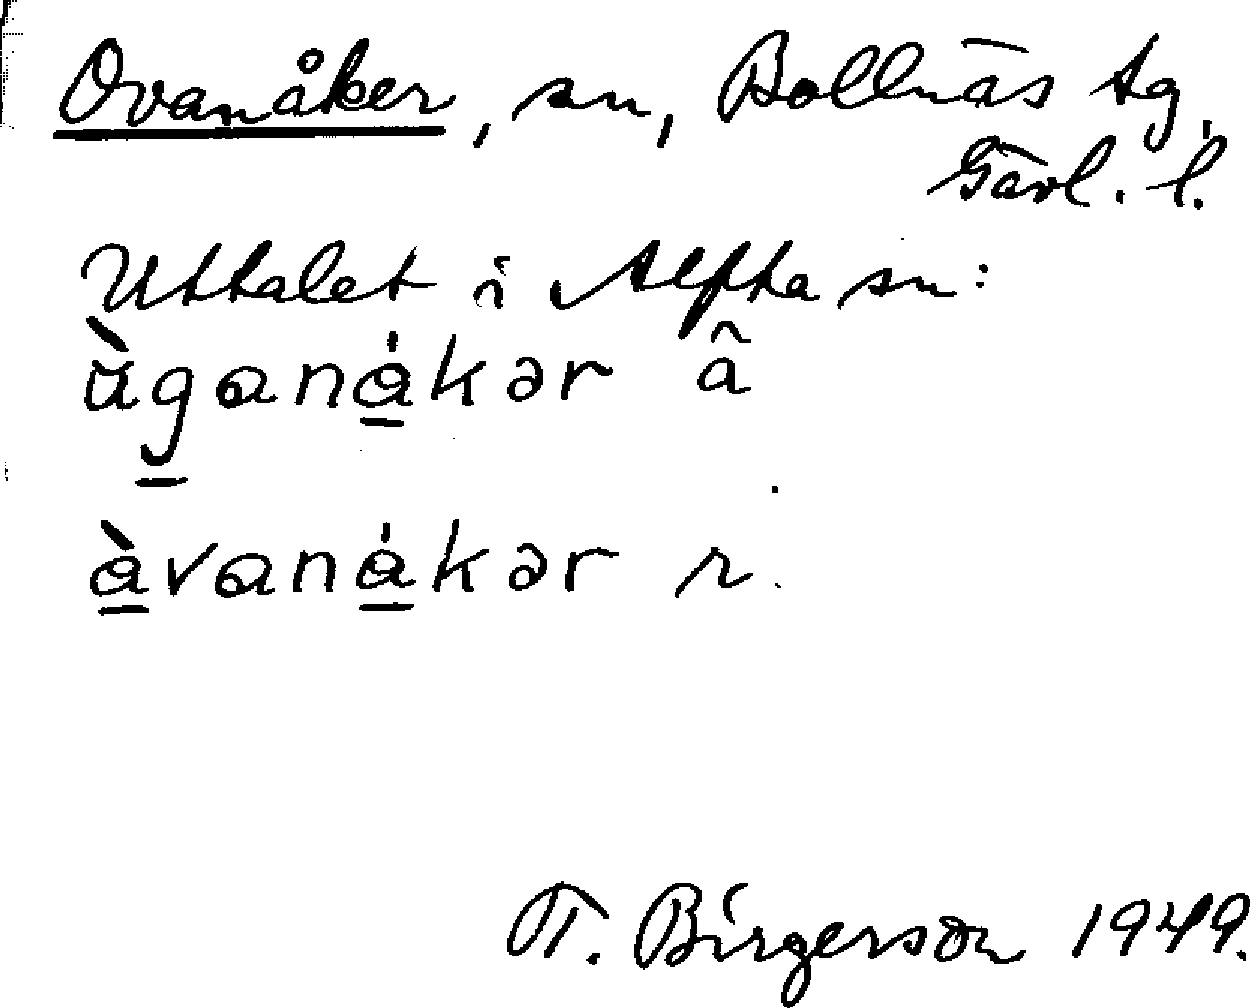 Ovanåker, sn, Bollnäs tg,
Gävl. l.
Uttalet i Alfta sn:
ùganåkər â
åvanåkər r.
T. Birgerson 1949.